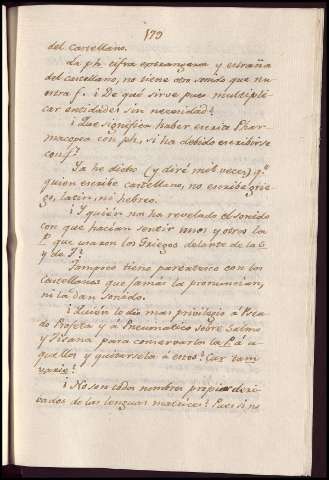 179
del castellano.
La ph. cifra extrangera y extraña
del castellano, no tiene otro sonido que nu
estra f. ¿De qué sirve pues multipli
car entidades sin necesidad?
¿Qué significa haber escrito Phar
macopea con ph, si ha debido escribirse
con f?
Ya he dicho (y diré mil veces) qe
quien escribe castellano, no escribe grie
go, latin, ni hebreo.
¿Y quién nos ha revelado el sonido
con que hacían sentir unos y otros la
P. que usaron los Griegos delante de la
y de
Tampoco tiene parentesco con los
castellanos que jamás la pronuncian,
ni la dan sonido.
¿Quién le dio mas privilegio á
do Profeta y á Pneumatico sobre Salmo
y Tisana para conservarles la P. á a
quellos y quitarsela á estos?
¿No son todos nombres propios deri
vados de las lenguas matrices? Pues si no